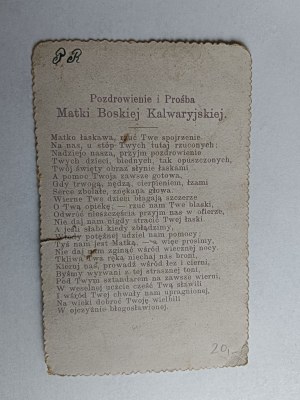 P R
Pozdrowienie i Prośba
Matki Boskiej Kalwaryjskiej.
Matko łaskawa, rzuć Twe spojrzenie
Na nas, u stóp Twych tutaj rzuconych:
Nadziejo nasza, przyjm pozdrowienie
Twych dzieci, biednych, tak opuszczonych,
Twój święty obraz słynie łaskami
A pomoc Twoja zawsze gotowa,
Gdy trwogą, nędzą, cierpieniem, łzami
Serce zbolałe, znękana głowa
Wierne Twe dzieci błagają szczerze
O Twą opiekę; — rzuć nam Twe blaski,
Odwróć nieszczęścia przyjm nas w ofierze,
Nie daj nam nigdy stracić Twej łaski
A jeśli słabi kiedy zbłądzimy,
potężnej udziel nam pomocy:
Tyś nam jest Matką, — a więc prosimy,
Nie daj nam zginąć wśród wiecznej nocy
Tkliwa Twa ręka niechaj nas broni,
Kieruj nas, prowadź wśród łez i cierni,
Byśmy wyrwani z tej strasznej toni,
Pod Twym sztandarem na zawsze wierni,
W wspólnej uczcie część Twą sławili
I wśród Twej chwały nam upragnionej,
Na wieki dobroć Twoję wielbili
W ojczyźnie błogosławionej.
20,-